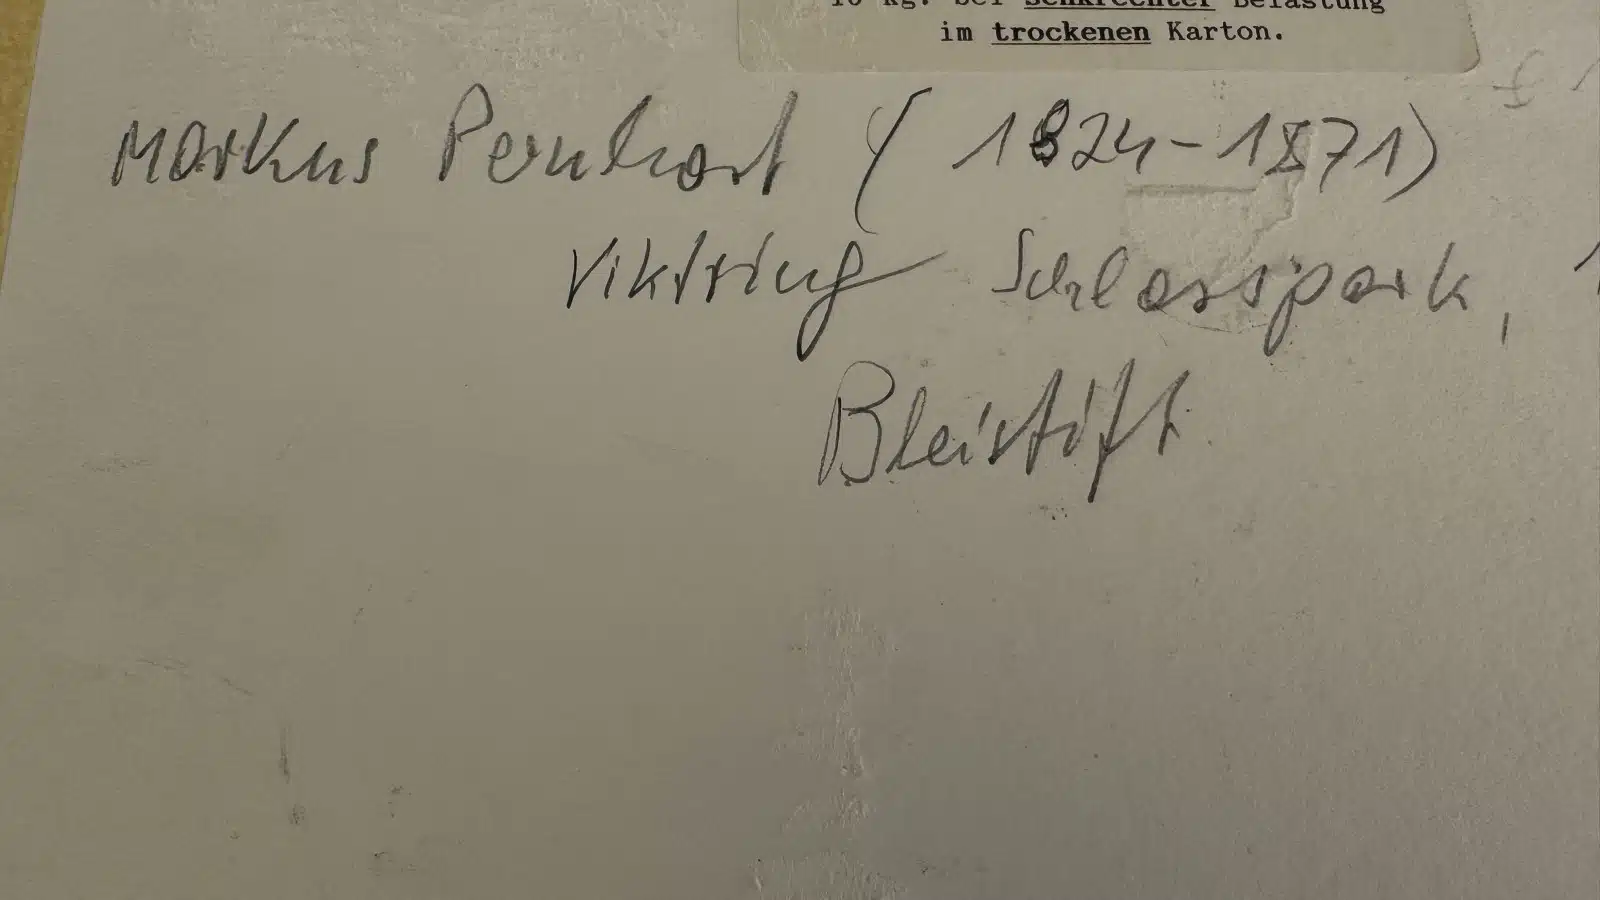 10 kg. bei senkrechter Belastung
im trockenen Karton.
Markus Pernhart (1824-1871)
Viktring Schlosspark,
Bleistift